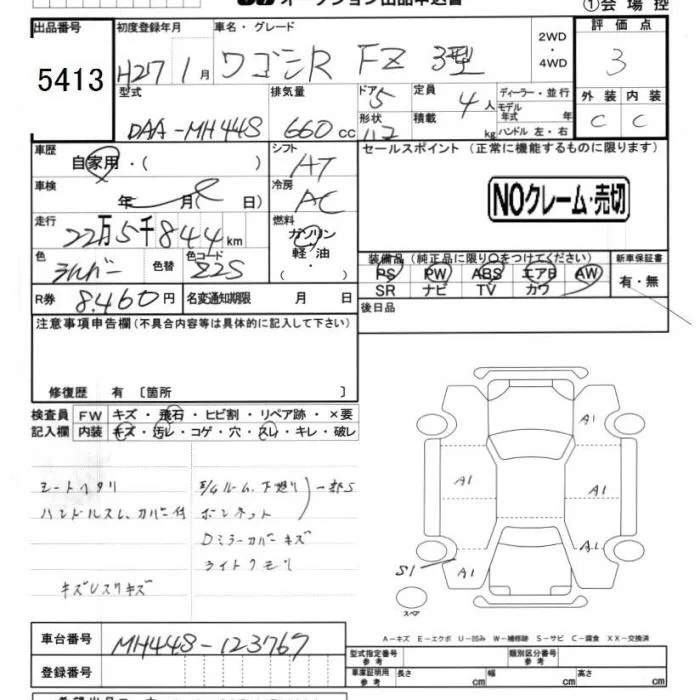 オークション出品申込書
①会場控
出品番号 初度登録年月 車名・グレード 2WD ・ 4WD 評価点
5413 H27 1月 ワゴンR FZ 3型 3
型式 排気量 ドア 5 定員 4人 ディーラー・並行 外装 内装
DAA-MH44S 660cc 形状 積載 kg モデル年式 年 ハンドル 左・右 C C
車歴 シフト セールスポイント(正常に機能するものに限ります)
自家用・( ) AT
車検 冷房 NOクレーム・売切
年 月( 日) AC
走行 燃料
22万5千844km ガソリン
軽油
・( )
装備品(純正品に限り○をつけてください) 新車保証書
色 色替 色コード
シルバー Z2S
PS PW ABS エアB AW 有・無
SR ナビ TV カワ
R券 8,460円 名変通知期限 月 日
後日品
注意事項申告欄(不具合内容等は具体的に記入して下さい)
修復歴 有 〔箇所 〕
検査員 FW キズ・飛石・ヒビ割・リペア跡・×要
記入欄 内装 キズ・汚レ・コゲ・穴・スレ・キレ・破レ
シートヘタリ
ハンドルスレ、カバー付
E/Gルーム、下廻り 一部S
ボンネット
Dミラーカバーキズ
ライトクモリ
キズUスリキズ
A1
A1
A1
A1
A1
S1
スペア
A-キズ E-エクボ U-凹み W-補修跡 S-サビ C-腐食 XX-交換済
車台番号 MH44S-123767
型式指定番号 参考 類別区分番号 参考
登録番号
車庫証明用 参考 長さ cm 幅 cm 高さ cm